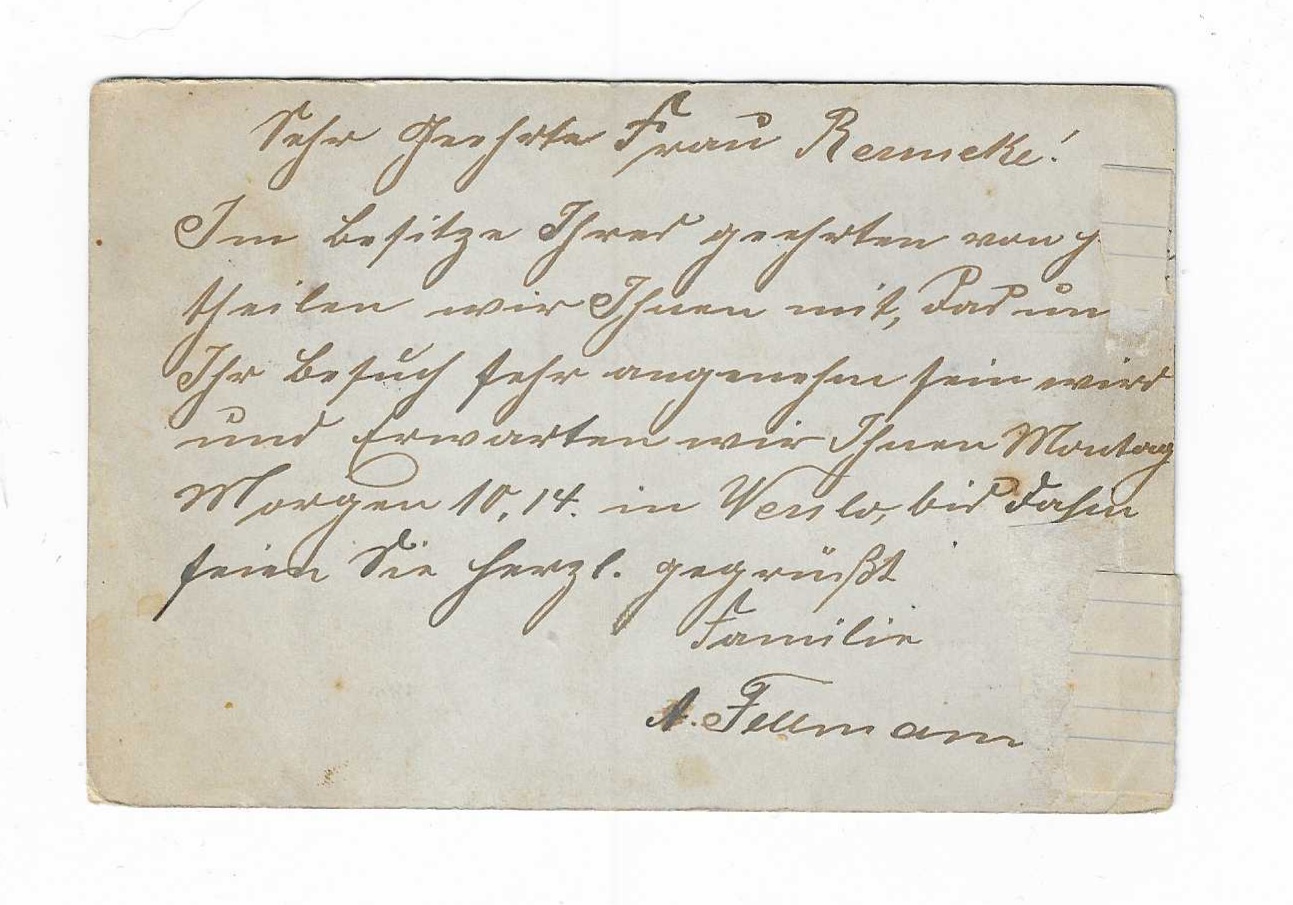 Sehr Geehrte Frau Rennecke!
Im Besitze Ihres geehrten von
theilen wir Ihnen mit, das un
Ihr Besuch sehr angenehm sein wird
und Erwarten wir Ihnen Montag
Morgen 10,14. in Venlo, bis dahin
seien Sie herzl. gegrüßt
Familie
A. Fellmann